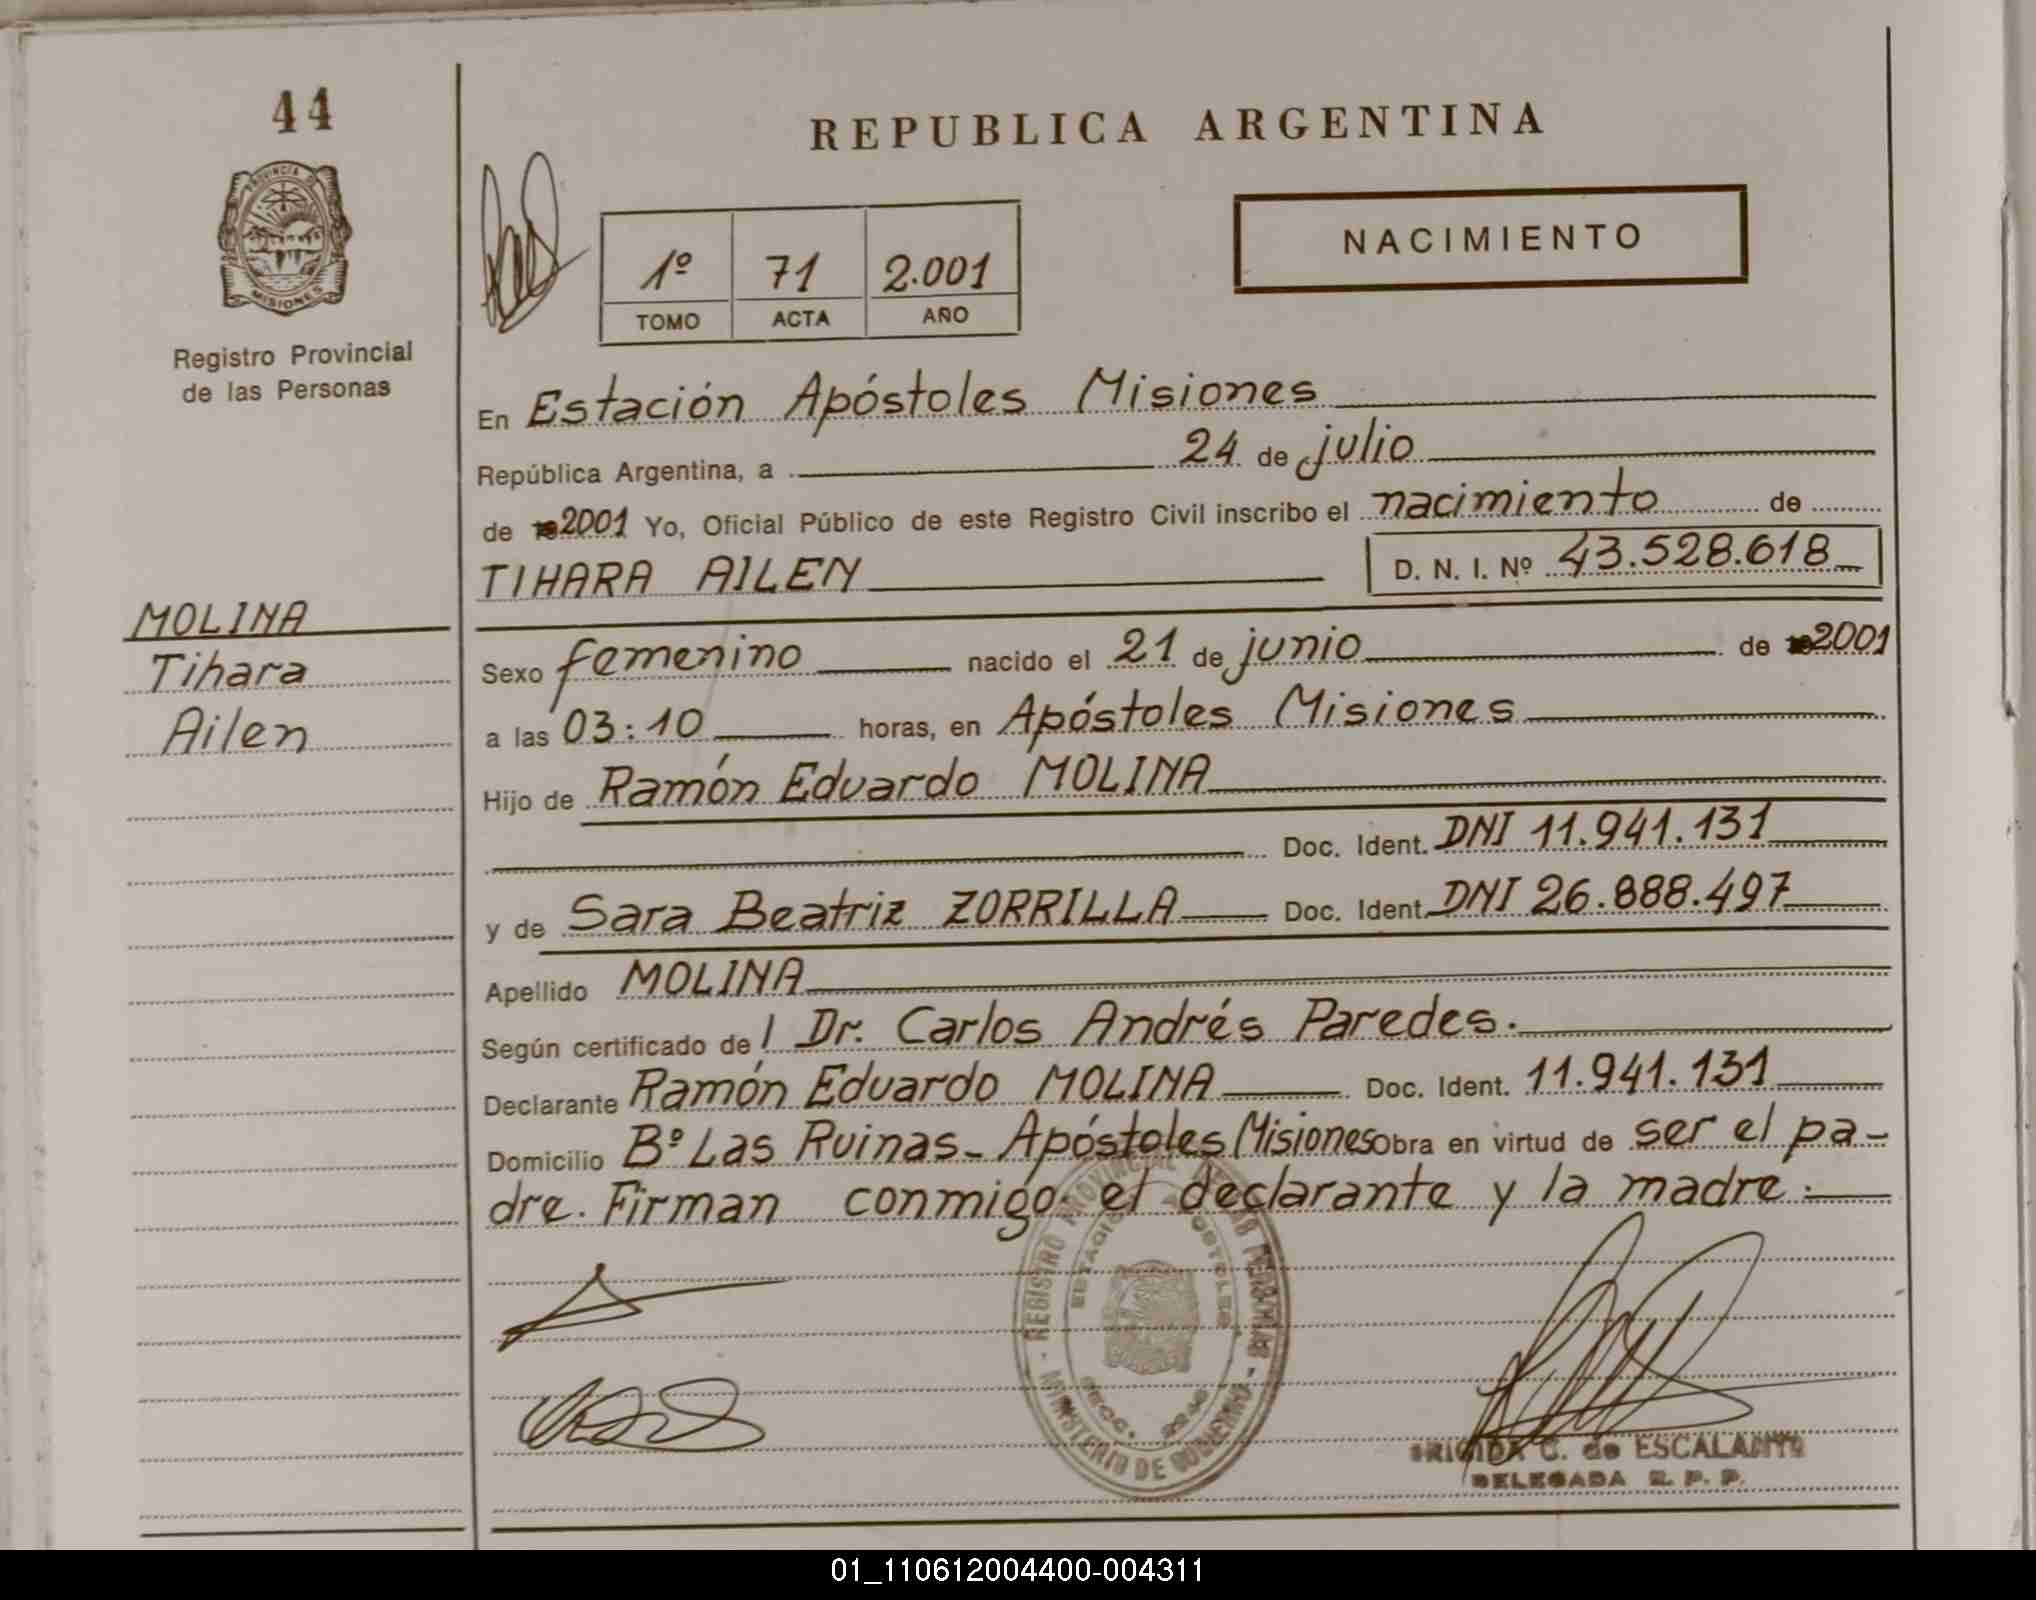 44
PROVINCIA D
MISIONES
Registro Provincial
de las Personas
MOLINA
Tihara
Ailen
REPUBLICA ARGENTINA
NACIMIENTO
1º 71 2.001
TOMO ACTA AÑO
En Estación Apóstoles Misiones
República Argentina, a 24 de julio
de 2001 Yo, Oficial Público de este Registro Civil inscribo el nacimiento de
TIHARA AILEN D. N. I. Nº 43.528.618
Sexo femenino nacido el 21 de junio de 2001
a las 03:10 horas, en Apóstoles Misiones
Hijo de Ramón Eduardo MOLINA
Doc. Ident. DNI 11.941.131
y de Sara Beatriz ZORRILLA Doc. Ident. DNI 26.888.497
Apellido MOLINA
Según certificado de l Dr. Carlos Andrés Paredes.
Declarante Ramón Eduardo MOLINA Doc. Ident. 11.941.131
Domicilio Bº Las Ruinas - Apóstoles Misiones obra en virtud de ser el pa-
dre. Firman conmigo el declarante y la madre.
REGISTRO PROVINCIAL DE LAS PERSONAS
MINISTERIO DE GOBIERNO
BRIGIDA C. de ESCALANTE
DELEGADA R. P. P.
01_110612004400-004311